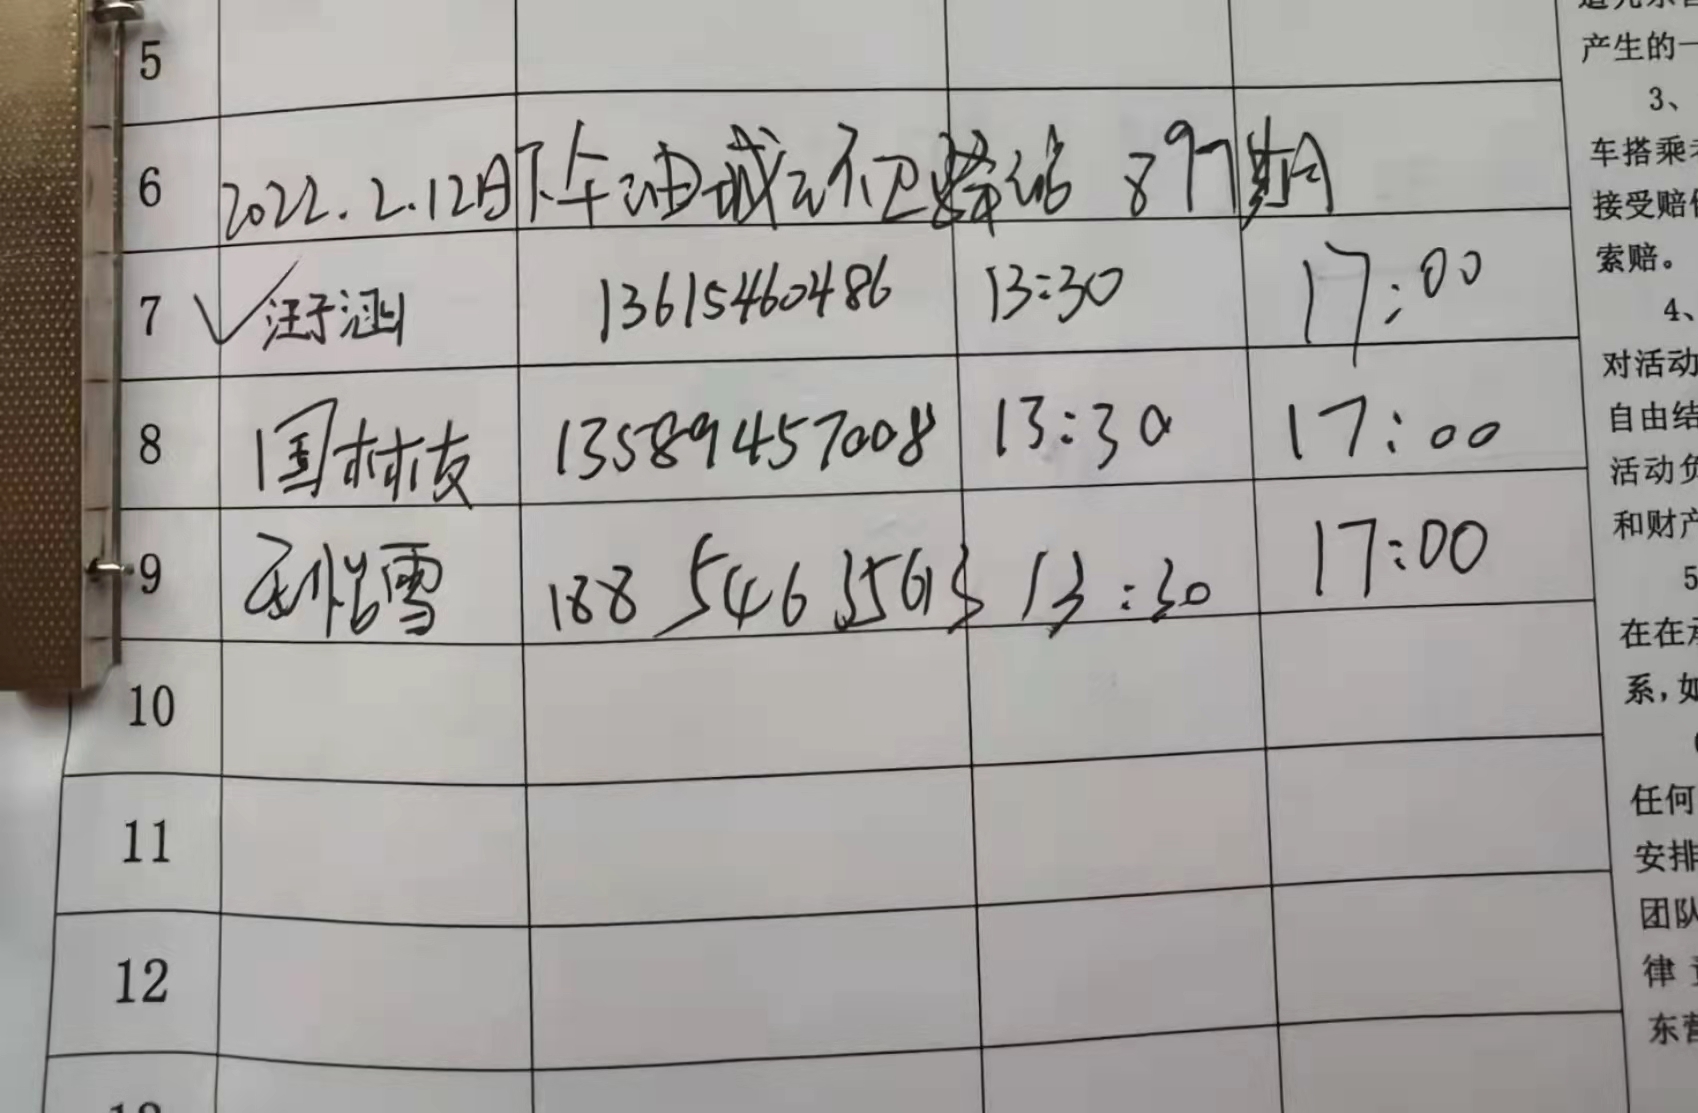 5
产生的一
3、
6 2022.2.12日下午油城 环卫 897期
车搭乘
接受赔
索赔。
7 √汪子涵 13615460486 13:30 17:00
4、
对活动
8 国林友 13589457008 13:30 17:00
自由结
活动负
和财产
9 雪 188 5463 13:30 17:00
5
在在
系,如
10
任何
11
安排
团队
12
律
东营